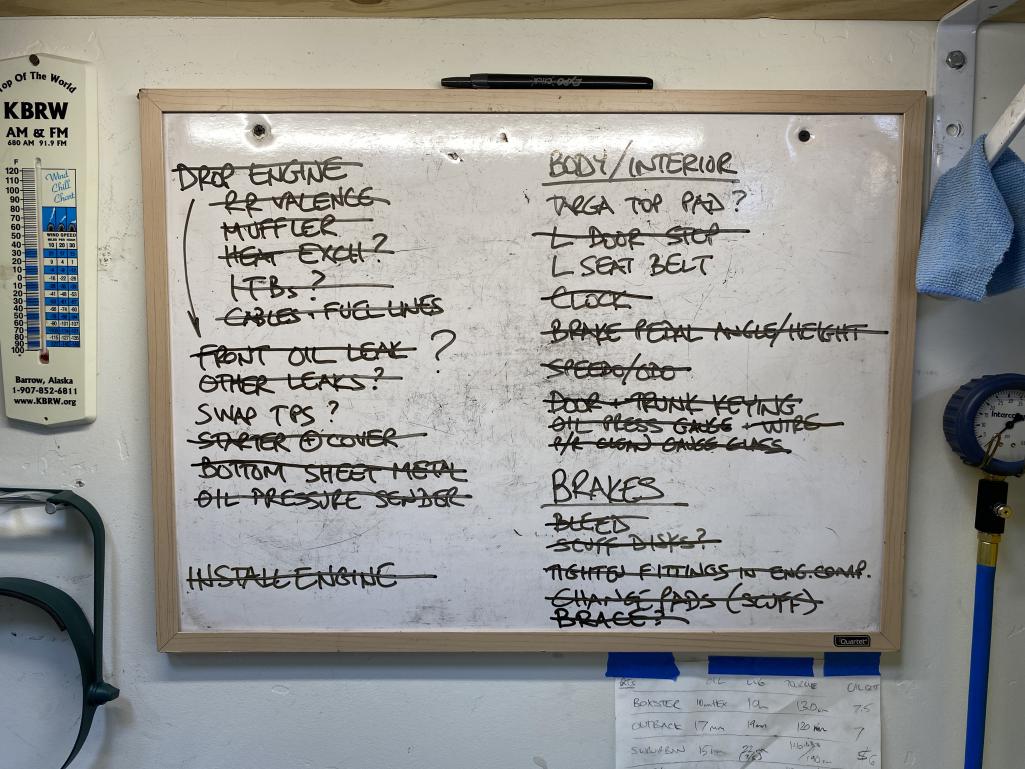 Top Of The World
KBRW
AM & FM
680 AM 91.9 FM
F
Wind
Chill
Chart
WIND SPEED
10 20 30
120
110
100
90
80
70
60
50
40
30
20
10
0
10
20
30
40
50
60
70
80
90
100
Barrow, Alaska
1-907-852-6811
www.KBRW.org
EXPO Click
DROP ENGINE
RR VALENCE
MUFFLER
HEAT EXCH?
ITBs?
CABLES + FUEL LINES
FRONT OIL LEAK ?
OTHER LEAKS?
SWAP TPS ?
STARTER + COVER
BOTTOM SHEET METAL
OIL PRESSURE SENDER
INSTALL ENGINE
BODY/INTERIOR
TARGA TOP PAD?
L DOOR STOP
L SEAT BELT
CLOCK
BRAKE PEDAL ANGLE/HEIGHT
SPEEDO/ODO
DOOR + TRUNK KEYING
OIL PRESS GAUGE + WIRE
P/R CLEAN GAUGE GLASS
BRAKES
BLEED
SCUFF DISKS?
TIGHTEN FITTINGS IN ENG.COMP.
CHANGE PADS (SCUFF)
BRACE?
Quartet
OIL LUG TORQUE OIL QT
BOXSTER 10mm HEX 19m 130nm 7.5
OUTBACK 17mm 19mm 120nm 7
SUBURBAN 15m $6
Interco